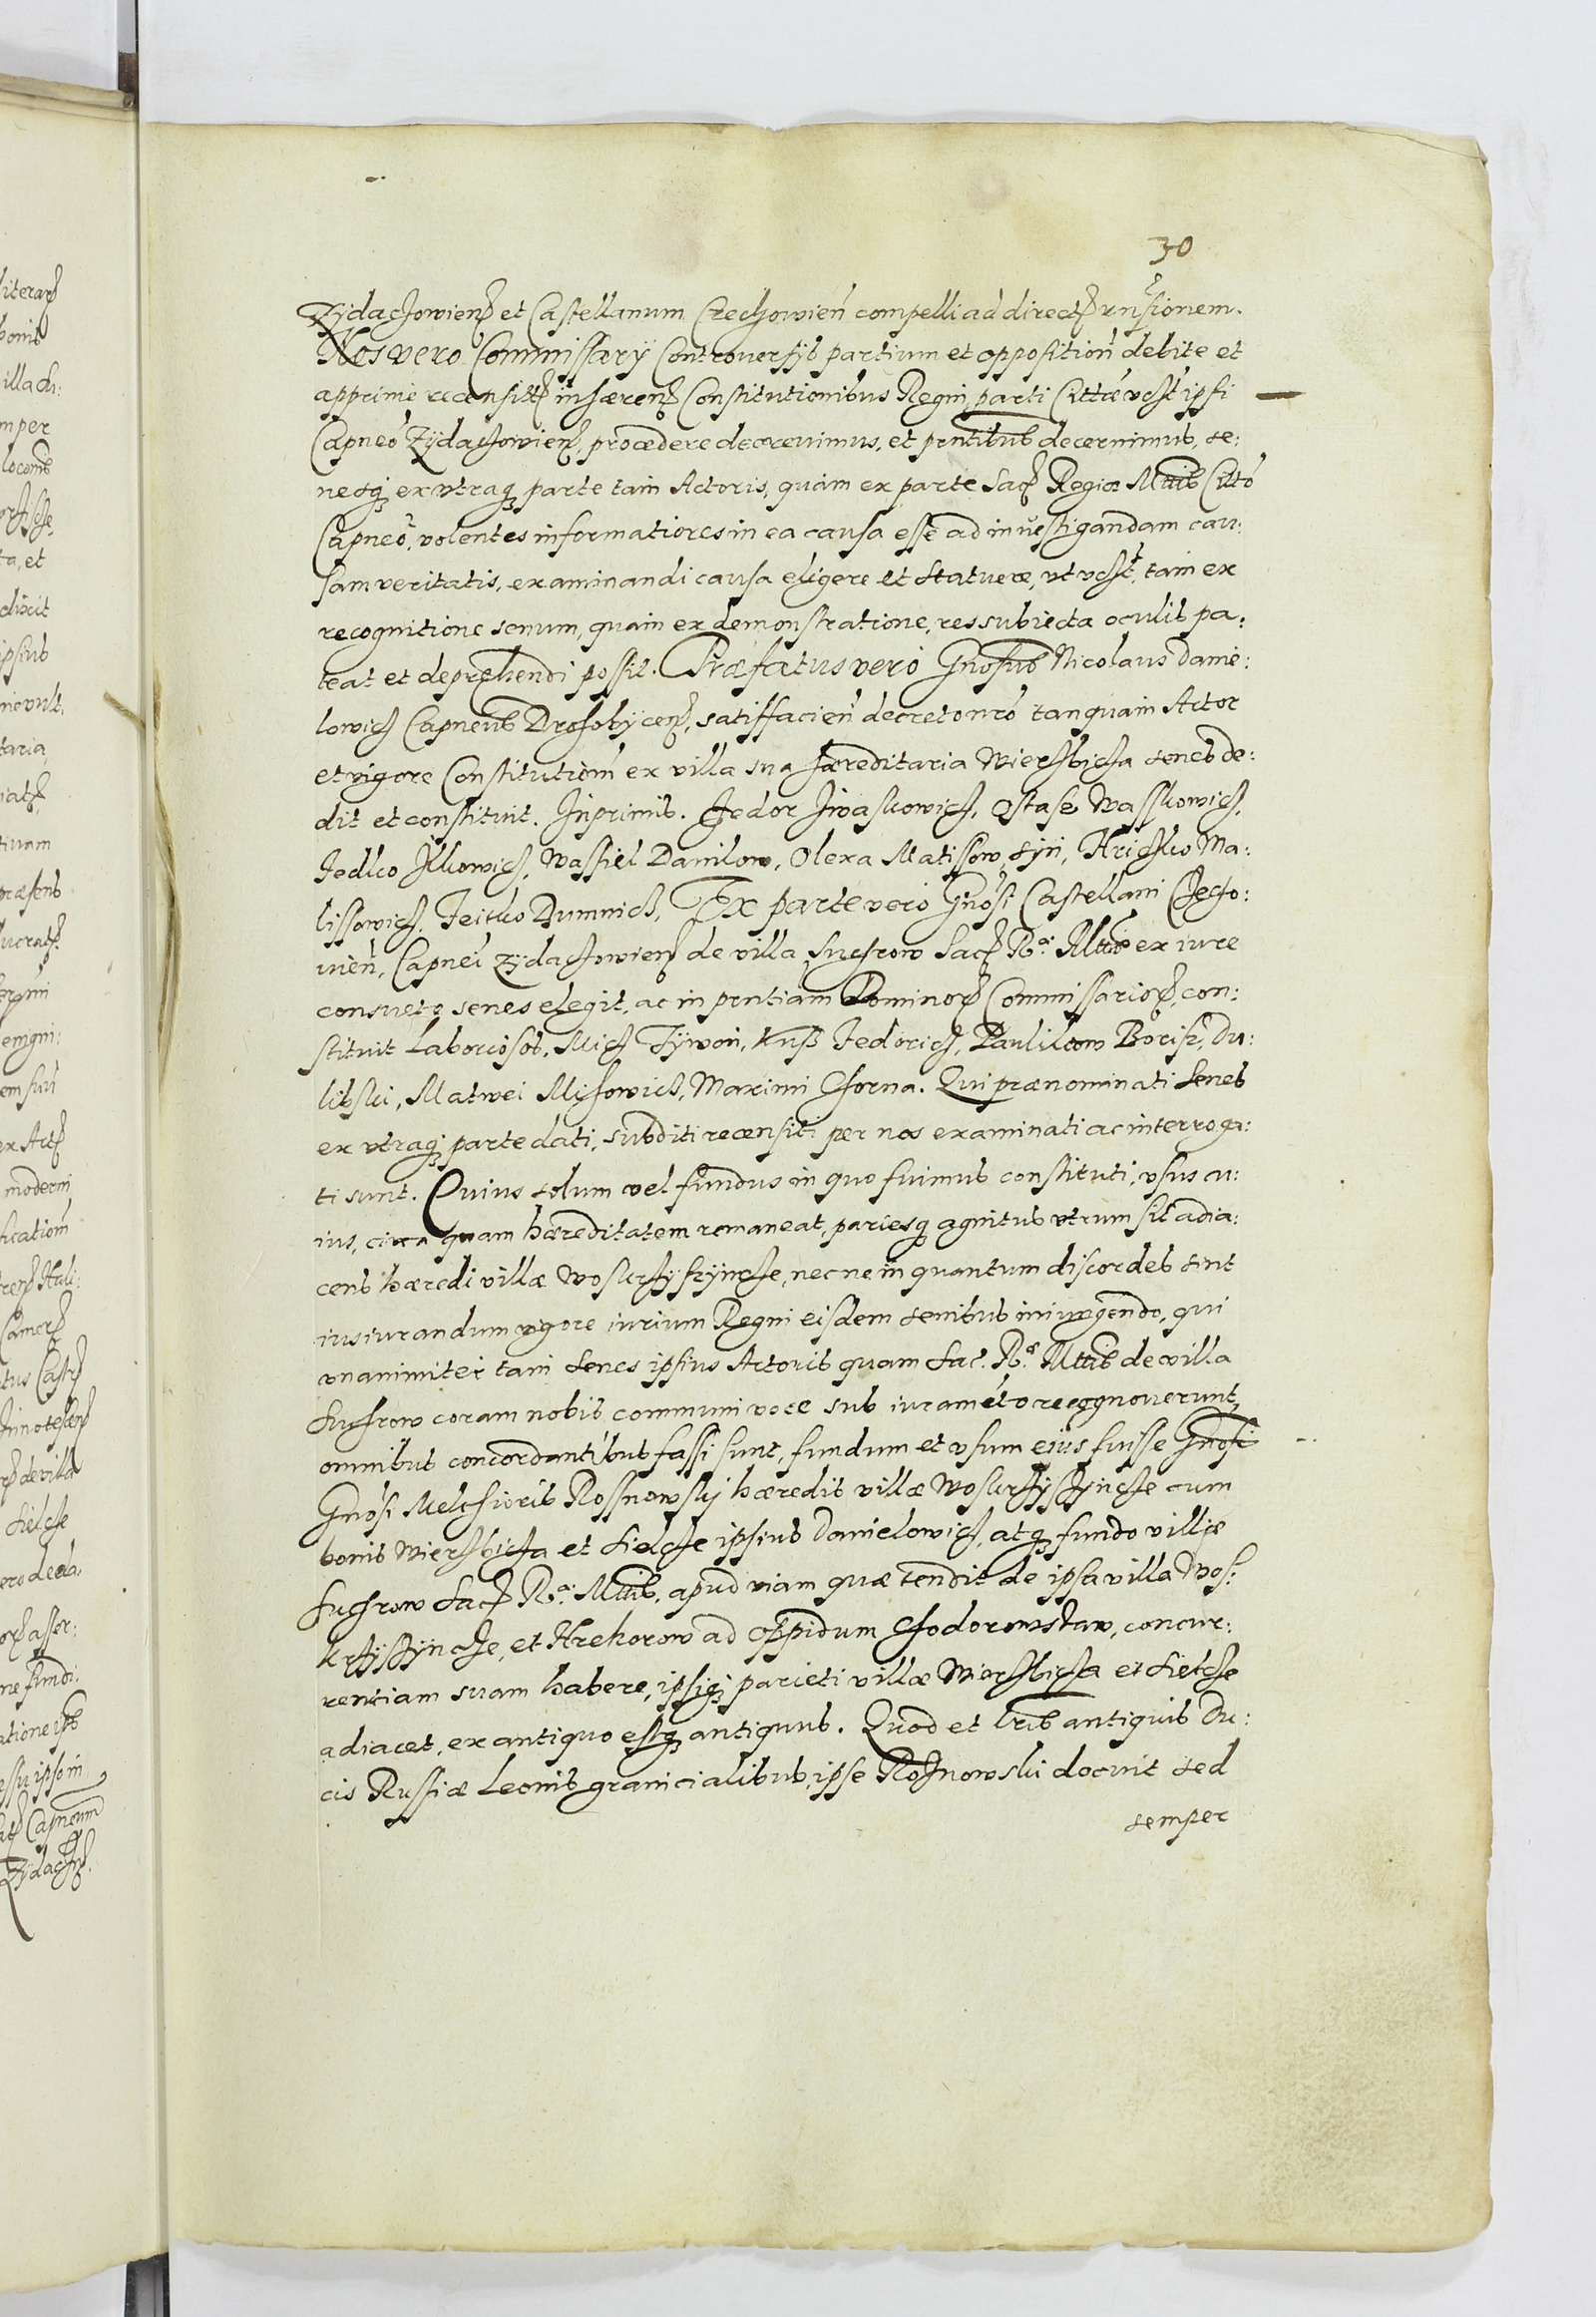 30
Zÿdachowien̄ et Castellanum Czechowien̄ compelli ad direct rnsionem.
Nos vero Commissarÿ Controversÿs partium et opposition̄ debite et
apprime recensit inhæren Constitutionibus Regni, parti Cittæ vest ipsi
Capneo Zÿdachowien, procedere decrevimus, et prntibus decernimus, se:
nesq; ex vtraq; parte tam Actoris, quam ex parte Sac Regiæ Mttis Citto
Capneo, volentes informatiores in ea causa esse ad investigandam cau:
sam veritatis, examinandi causa eligere et statuere, vt vest, tam ex
recognitione senum, quam ex demonstratione, res subiecta oculis pa:
teat et deprehendi possit. Præfatus vero Gnosus Nicolaus Danie:
lowich Capneus Drohobÿcen, satisfacien̄ decreto nro tanquam Actor
et vigore Constitution̄ ex villa sua hæreditaria Wierzbicza senes de:
dit et constituit. Inprimis. Fedor Iwaskowich, Ostase Wasskowich,
Fedko Ilkowich, Wassiel Danilow, Olexa Matissow sÿn, Hrichko Ma:
lissowich, Feitko Dumnich, Ex parte vero Gnosi Castellani Checho:
uien̄, Capnei Zÿdachowien de villa Suchrow Sac R. Mttis ex iure
consueto senes elegit, ac in prntiam Dominor Commissarior, con:
stituit Laboriosos, Mich Tÿwon, Kuss Fedorich, Paulikow Borisz, Du:
libski, Matwei Mÿsowich, Maximi Chorna. Qui prænominati senes
ex vtraq; parte dati, subditi recensiti per nos examinati ac interroga:
ti sunt. Cuius solum vel fundus in quo fuimus constituti, vsus cu:
ius, circa quam hæreditatem remaneat, pariesq; agnitus vtrum sit adia:
cens hæredi villæ Woskrzÿszÿncze, nec ne in quantum discordes sint
iusiurandum vigore iurium Regni eisdem senibus iniungendo, qui
vnanimiter tam senes ipsius Actoris quam Sac. R. Mttis de villa
Suchrow coram nobis communi voce sub iuramēto recognouerunt,
omnibus concordantibus fassi sunt, fundum et vsum eius fuisse Gnosi
Gnosi Melchioris Rossnowskÿ hæredis villæ Woskrzÿszÿncze cum
bonis Wierzbicza et Sielcze ipsius Danielowich, atq; fundo villæ
Suchrow Sac R. Mttis, apud viam quæ tendit de ipsa villa Wos:
krzÿszÿncze, et Hrehorow ad oppidum Chodorowstaw, concur:
rentiam suam habere, ipsiq; parieti villæ Wierzbicza et Sielcze
adiacet, ex antiquo estq; antiquus. Quod et lris antiquis Du:
cis Russiæ Leonis granicialibus, ipse Rosnowski docuit sed
semper